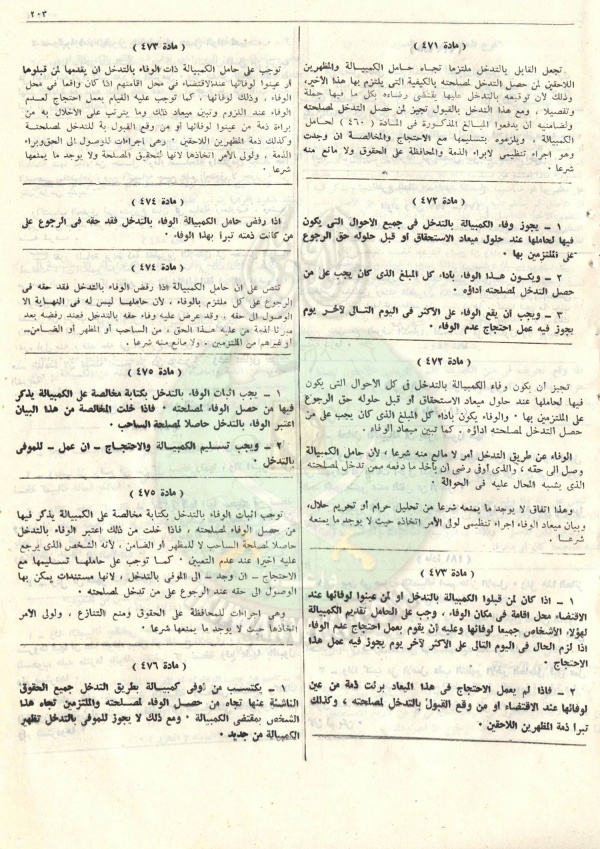 ٢٠٣
( مادة ٤٧١ )
تجعل القابل بالتدخل ملتزما تجاه حامل الكمبيالة والمظهرين
اللاحقين لمن حصل التدخل لمصلحته بالكيفية التى يلتزم بها هذا الأخير،
وذلك لأن توقيعه بالتدخل عليها يقتضى رضاءه بكل ما فيها جملة
وتفصيلا ، ومع هذا التدخل بالقبول تجيز لمن حصل التدخل لمصلحته
ولضامنيه ان يدفعوا المبالغ المذكورة فى المادة ( ٤٦٠ ) لحامل
الكمبيالة ، ويلزموه بتسليمها مع الاحتجاج والمخالصة ان وجدت
وهو اجراء تنظيمى لابراء الذمة والمحافظة على الحقوق ولا مانع منه
شرعا ٠
( مادة ٤٧٢ )
١ ــ يجوز وفاء الكمبيالة بالتدخل فى جميع الأحوال التى يكون
فيها لحاملها عند حلول ميعاد الاستحقاق أو قبل حلوله حق الرجوع
على الملتزمين بها ٠
٢ ــ ويكون هذا الوفاء بأداء كل المبلغ الذى كان يجب على من
حصل التدخل لمصلحته أداؤه ٠
٣ ــ ويجب أن يقع الوفاء على الأكثر فى اليوم التالى لآخر يوم
يجوز فيه عمل احتجاج عدم الوفاء ٠
( مادة ٤٧٢ )
تجيز ان يكون وفاء الكمبيالة بالتدخل فى كل الأحوال التى يكون
فيها لحاملها عند حلول ميعاد الاستحقاق أو قبل حلوله حق الرجوع
على الملتزمين بها ٠ والوفاء يكون بأداء كل المبلغ الذى كان يجب على من
حصل التدخل لمصلحته اداؤه ٠ كما تبين ميعاد الوفاء ٠
الوفاء عن طريق التدخل أمر لا مانع منه شرعا ، لأن حامل الكمبيالة
وصل الى حقه ، والذى أوفى رضى ان يأخذ ما دفعه ممن تدخل لمصلحته
الذى يشبه المحال عليه فى الحوالة ٠
وهذا اتفاق لا يوجد ما يمنعه شرعا من تحليل حرام أو تحريم حلال،
وبيان ميعاد الوفاء اجراء تنظيمى لولى الأمر اتخاذه حيث لا يوجد ما يمنعه
شرعا ٠
( مادة ٤٧٣ )
١ ــ اذا كان لمن قبلوا الكمبيالة بالتدخل أو لمن عينوا لوفائها عند
الاقتضاء محل اقامة فى مكان الوفاء ، وجب على الحامل تقديم الكمبيالة
لهؤلاء الأشخاص جميعا لوفائها وعليه أن يقوم بعمل احتجاج عدم الوفاء
اذا لزم الحال فى اليوم التالى على الأكثر لآخر يوم يجوز فيه عمل هذا
الاحتجاج ٠
٢ ــ فاذا لم يعمل الاحتجاج فى هذا الميعاد برئت ذمة من عين
لوفائها عند الاقتضاء او من وقع القبول بالتدخل لمصلحته ، وكذلك
تبرأ ذمة المظهرين اللاحقين ٠
( مادة ٤٧٣ )
توجب على حامل الكمبيالة ذات الوفاء بالتدخل ان يقدمها لمن قبلوها
أو عينوا لوفائها عند الاقتضاء فى محل اقامتهم اذا كان واقعا فى محل
الوفاء ، وذلك لوفائها ٠ كما توجب عليه القيام بعمل احتجاج لعدم
الوفاء عند اللزوم وتبين ميعاد ذلك وما يترتب على الاخلال به من
براءة ذمة من عينوا لوفائها أو من وقع القبول به للتدخل لمصلحته
وكذلك ذمة المظهرين اللاحقين ٠ وهى اجراءات للوصول الى الحق وبراءة
الذمة ، ولولى الأمر اتخاذها لانها لتحقيق المصلحة ولا يوجد ما يمنعها
شرعا ٠
( مادة ٤٧٤ )
اذا رفض حامل الكمبيالة الوفاء بالتدخل فقد حقه فى الرجوع على
من كانت ذمته تبرأ بهذا الوفاء ٠
( مادة ٤٧٤ )
تنص على ان حامل الكمبيالة إذا رفض الوفاء بالتدخل فقد حقه فى
الرجوع على كل ملتزم بالوفاء ، لأن حاملها ليس له فى النهاية الا
الوصول الى حقه ، وقد عرض عليه وفاء حقه بالتدخل فعند رفضه يعد
مبرئا لذمة من عليه هذا الحق ، من الساحب أو المظهر أو الضامن ــ
أو غيرهم من الملتزمين ٠ ولا مانع منه شرعا ٠
( مادة ٤٧٥ )
١ ــ يجب اثبات الوفاء بالتدخل بكتابة مخالصة على الكمبيالة يذكر
فيها من حصل الوفاء لمصلحته ٠ فاذا خلت المخالصة من هذا البيان
اعتبر الوفاء بالتدخل حاصلا لمصلحة الساحب ٠
٢ ــ ويجب تسليم الكمبيالة والاحتجاج ــ ان عمل ــ للموفى
بالتدخل ٠
( مادة ٤٧٥ )
توجب اثبات الوفاء بالتدخل بكتابة مخالصة على الكمبيالة يذكر فيها
من حصل الوفاء لمصلحته ، فاذا خلت من ذلك اعتبر الوفاء بالتدخل
حاصلا لمصلحة الساحب لا للمظهر أو الضامن ، لأنه الشخص الذى يرجع
عليه أخيرا عند عدم التعيين ٠ كما توجب على حاملها تسليمها مع
الاحتجاج ــ ان وجد ــ الى الموفى بالتدخل ، لانها مستندات يمكن بها
الوصول الى حقه عند الرجوع على من تدخل لمصلحته ٠
وهى اجراءات للمحافظة على الحقوق ومنع التنازع ، ولولى الأمر
اتخاذها حيث لا يوجد ما يمنعها شرعا ٠
( مادة ٤٧٦ )
١ ــ يكتسب من أوفى كمبيالة بطريق التدخل جميع الحقوق
الناشئة عنها تجاه من حصل الوفاء لمصلحته والملتزمين تجاه هذا
الشخص بمقتضى الكمبيالة ٠ ومع ذلك لا يجوز للموفى بالتدخل تظهير
الكمبيالة من جديد ٠